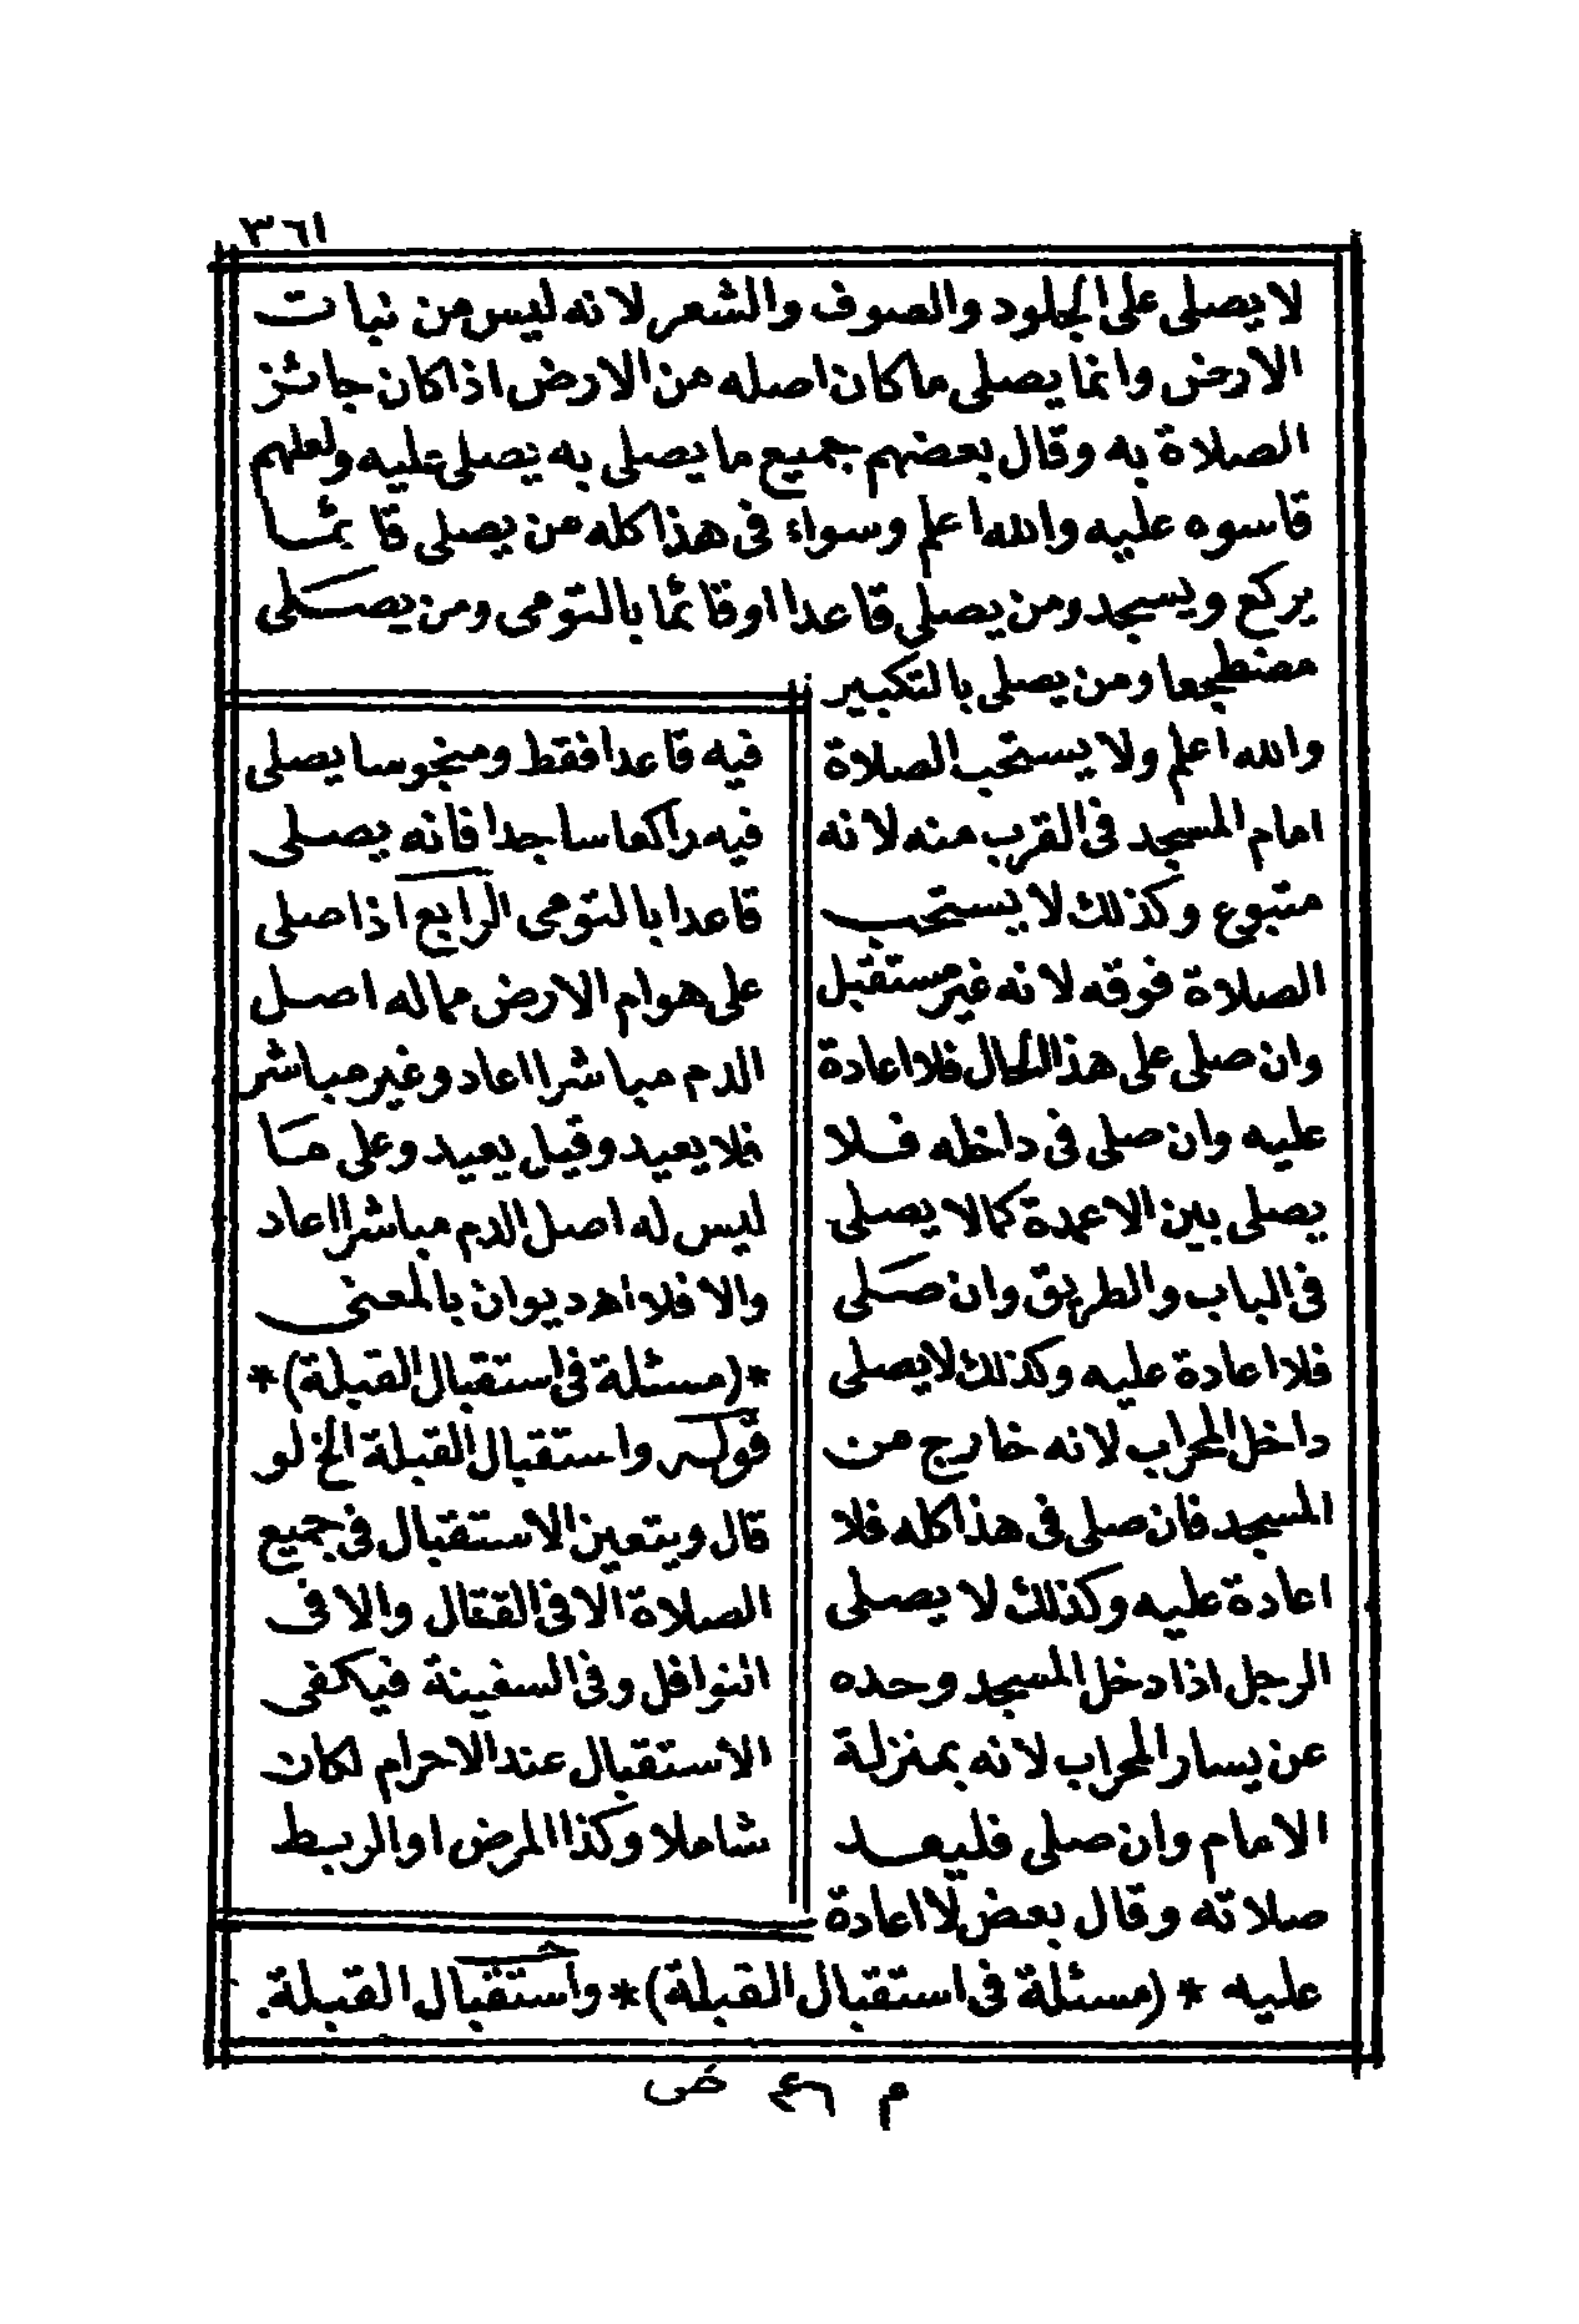 ٣٦١
لا يصلى على الجلود والصوف والشعر لانه ليس من نبات
الارض وانما يصلى ما كان اصله من الارض اذا كان جائز
الصلاة به وقال بعضهم جميع ما يصلى به يصلى عليه ولعلهم
قاسوه عليه والله اعلم وسواء فى هذا كله من يصلى قائما
يركع ويسجد ومن يصلى قاعدا او قائما بالتومى ومن يصلى
مضطجعا ومن يصلى بالتكبير
والله اعلم ولا يستحب الصلاة
امام المسجد فى القرب منه لانه
متبوع وكذلك لا يستحب
الصلاة فوقه لانه غير مستقبل
وان صلى على هذا الحال فلا اعادة
عليه وان صلى فى داخله فلا
يصلى بين الاعمدة كما لا يصلى
فى الباب والطريق وان صلى
فلا اعادة عليه وكذلك لا يصلى
داخل المحراب لانه خارج من
المسجد فان صلى فى هذا كله فلا
اعادة عليه وكذلك لا يصلى
الرجل اذا دخل المسجد وحده
عن يسار المحراب لانه بمنزلة
الامام وان صلى فليعد
صلاته وقال بعض لا اعادة
عليه *(مسئلة فى استقبال القبلة)* واستقبال القبلة
فيه قاعدا فقط ومنجوسا يصلى
فيه راكعا ساجدا فانه يصلى
قاعدا بالتومى الرابع اذا صلى
على هوام الارض مما له اصل
الدم مباشرا اعاد وغير مباشر
فلا يعيد وقيل يعيد وعلى ما
ليس له اصل الدم مباشرا اعاد
والا فلا اهـ ديوان بالمعنى
*(مسئلة فى استقبال القبلة)*
قوله واستقبال القبلة الخ لو
قال ويتعين الاستقبال فى جميع
الصلاة الا فى القتال والا فى
النوافل وفى السفينة فيكفى
الاستقبال عند الاحرام لكان
شاملا وكذا المرض او الربط
م ٤٦ ض